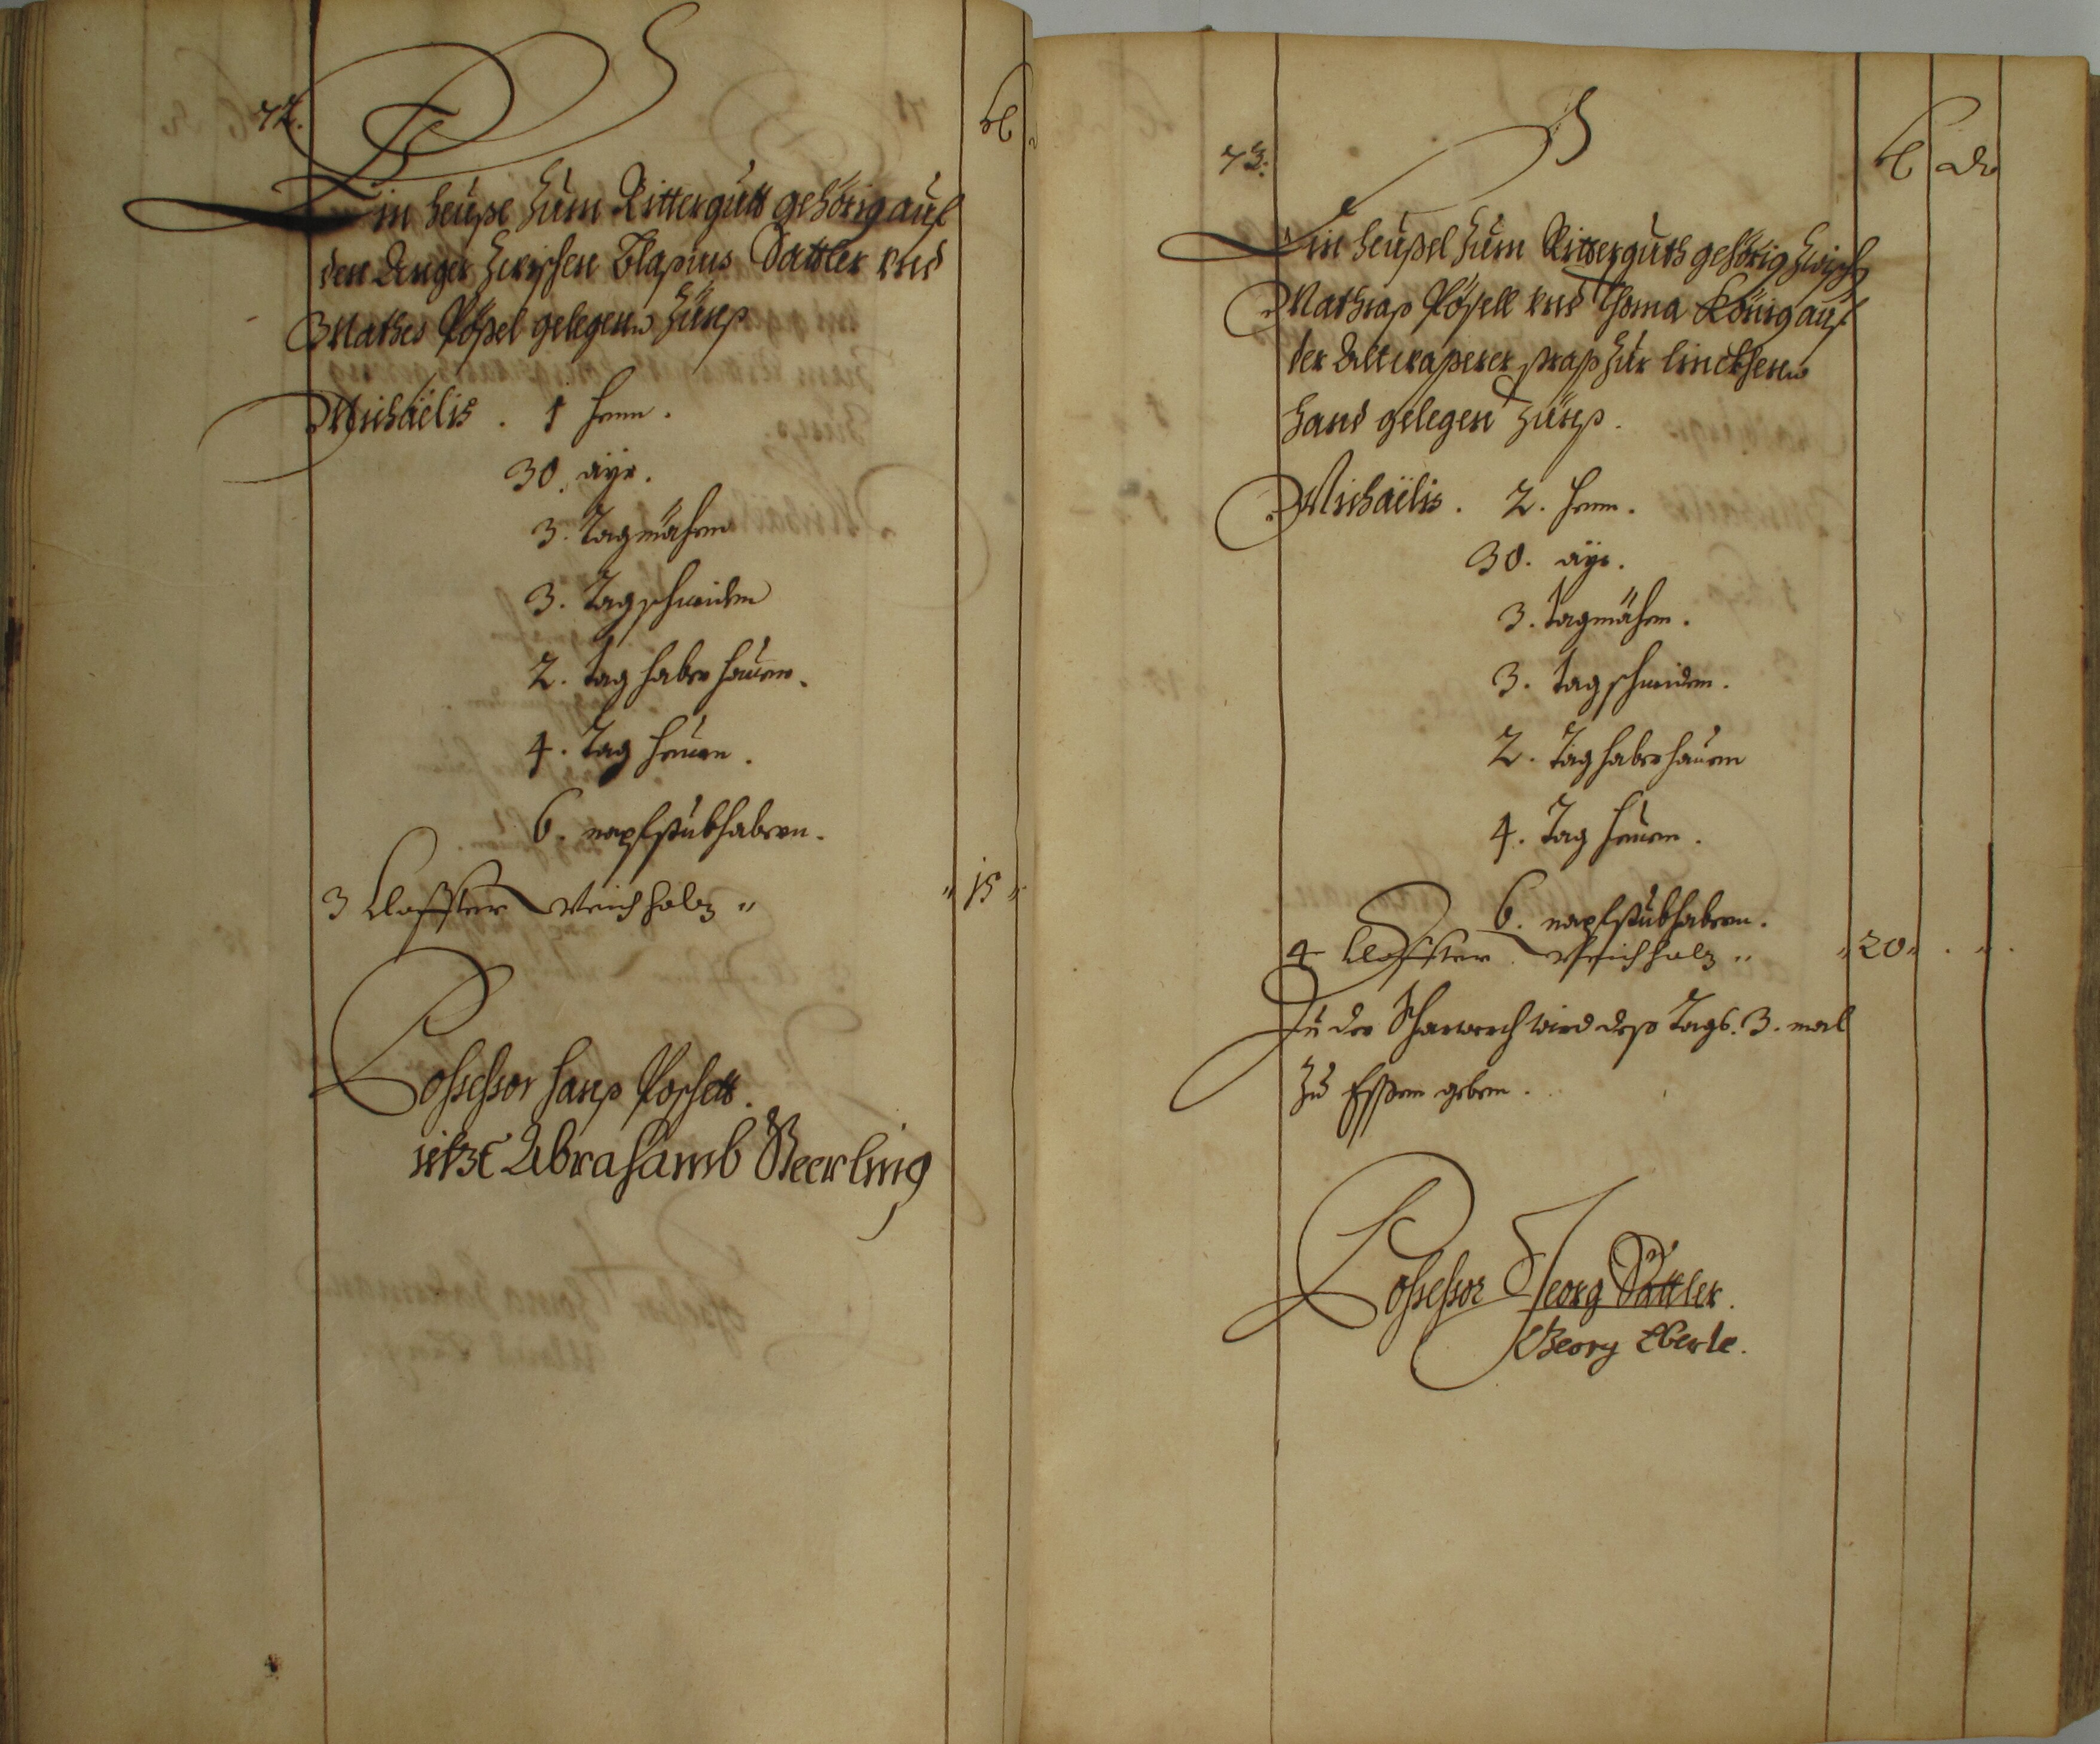 72.
kr
Ein heüßl zum Ritterguth gehörig auf
den Anger zwischen Blasius Sattler vnd
Mathes Pößel gelegen zünß
Michäelis. 1 henn.
30. äyr.
3. Tag mähen
3. Tag schneiden
2. tag haber hauen.
4. Tag heuen.
6. napf haberen.
3 Claffter Weichholz " " 15 "
Possessor Hanß Poschett.
ietzt Abrahamb
73.
kr
Ein heüßel zum Ritterguth gehörig zwisch
Mathias Pößell vnd Thoma König auf
der straß zur linckhen
hand gelegen zünß.
Michäelis. 2. henn.
30. äyr.
3. tag mähen.
3. tag schneiden.
2. Tag haber hauen
4. Tag heuen.
6. napf haberen.
4 Claffter Weichholz " " 20 "
Zu der Scharwerch wird deß Tags. 3. mal
zu Essen geben.
Possessor Georg Sattler.
Georg Eberle.